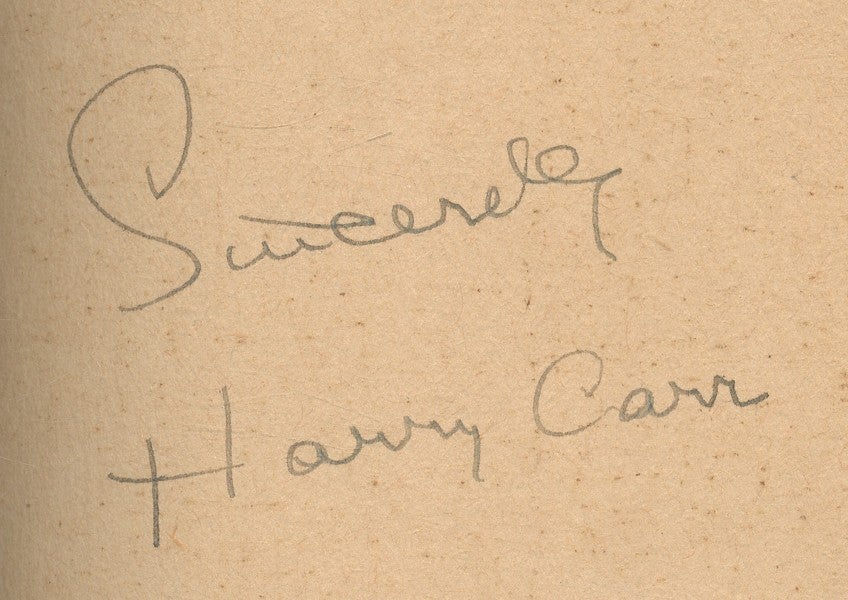 Sincerely
Harry Carr